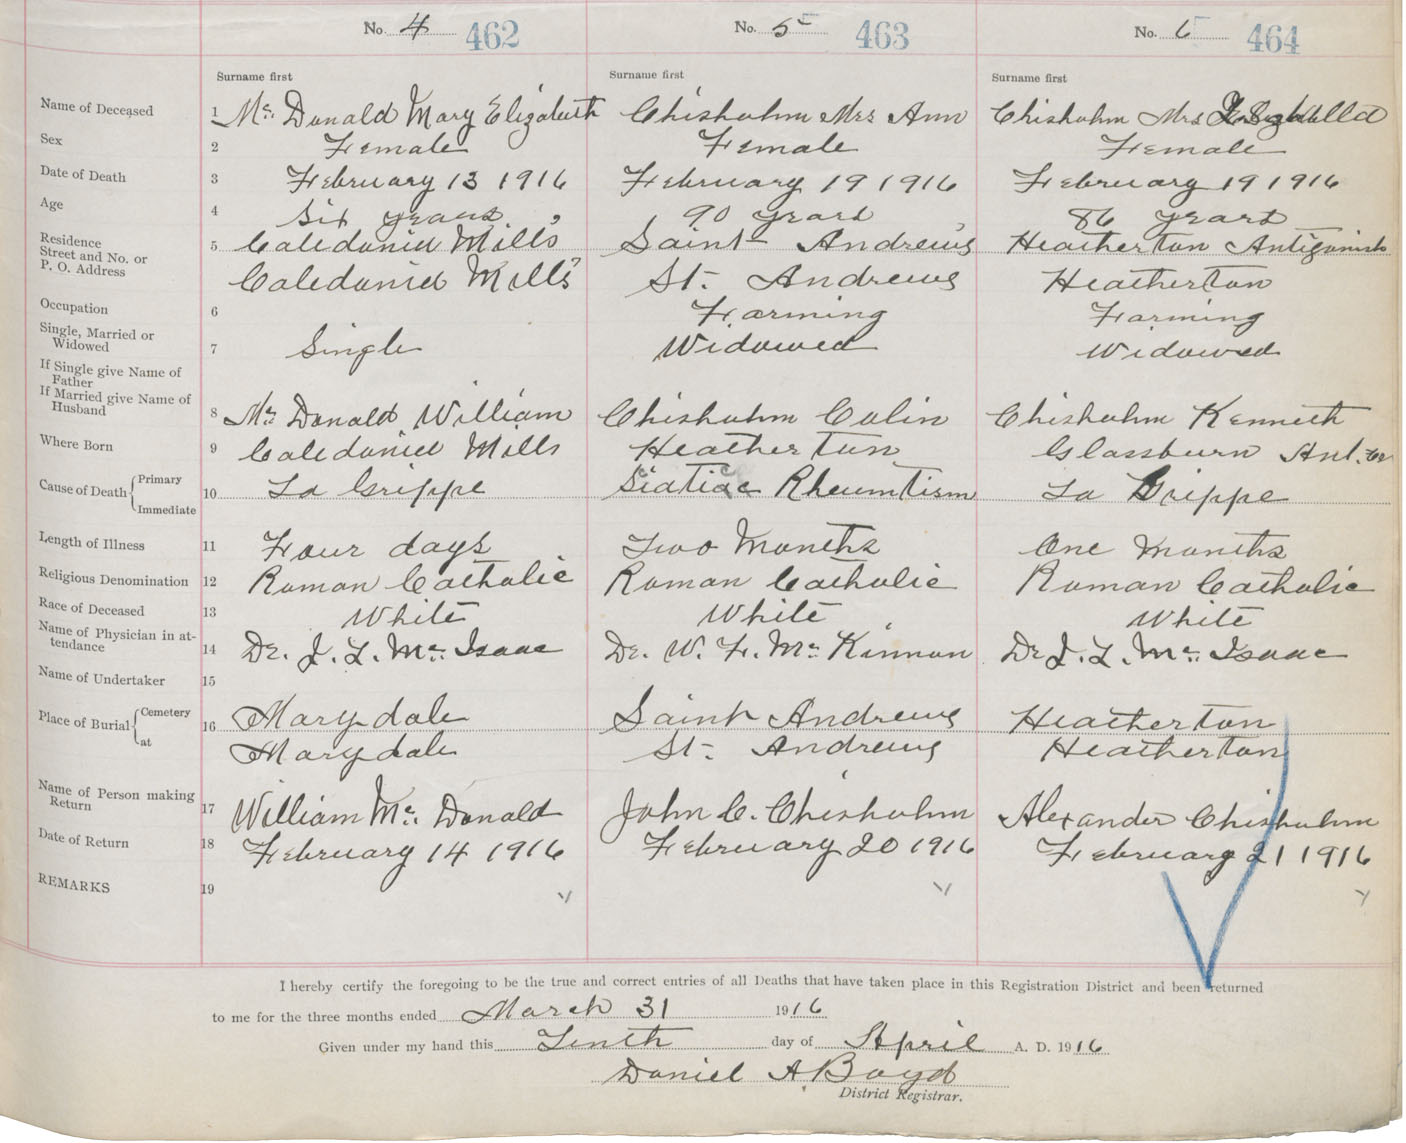 No. 4 462 No. 5 463 No. 6 464
Surname first Surname first Surname first
Name of Deceased 1 Mc Donald Mary Elizabeth Chisholm Mrs Ann Chisholm Mrs
Sex 2 Female Female Female
Date of Death 3 February 13 1916 February 19 1916 February 19 1916
Age 4 Six years 90 years 86 years
Residence 5 Caledonia Mills Saint Andrews Heatherton Antigonish
Street and No. or
P. O. Address Caledonia Mills St. Andrews Heatherton
Occupation 6 Farming Farming
Single, Married or
Widowed 7 Single Widowed Widowed
If Single give Name of
Father
If Married give Name of
Husband 8 Mc Donald William Chisholm Colin Chisholm Kenneth
Where Born 9 Caledonia Mills Heatherton Glassburn Ant. Co
Cause of Death { Primary
Immediate 10 La Grippe Siatiac Rheumtism La Grippe
Length of Illness 11 Four days Two Months One Months
Religious Denomination 12 Roman Catholic Roman Catholic Roman Catholic
Race of Deceased 13 White White White
Name of Physician in at-
tendance 14 Dr. J. L. Mc. Isaac Dr. W. F. Mc Kinnon Dr J. L. Mc. Isaac
Name of Undertaker 15
Place of Burial { Cemetery 16 Marydale Saint Andrews Heatherton
at Marydale St. Andrews Heatherton
Name of Person making
Return 17 William Mc. Donald John C. Chisholm Alexander Chisholm
Date of Return 18 February 14 1916 February 20 1916 February 21 1916
REMARKS 19
I hereby certify the foregoing to be the true and correct entries of all Deaths that have taken place in this Registration District and been returned
to me for the three months ended March 31 1916
Given under my hand this Tenth day of April A. D. 1916
Daniel A Boyd
District Registrar.